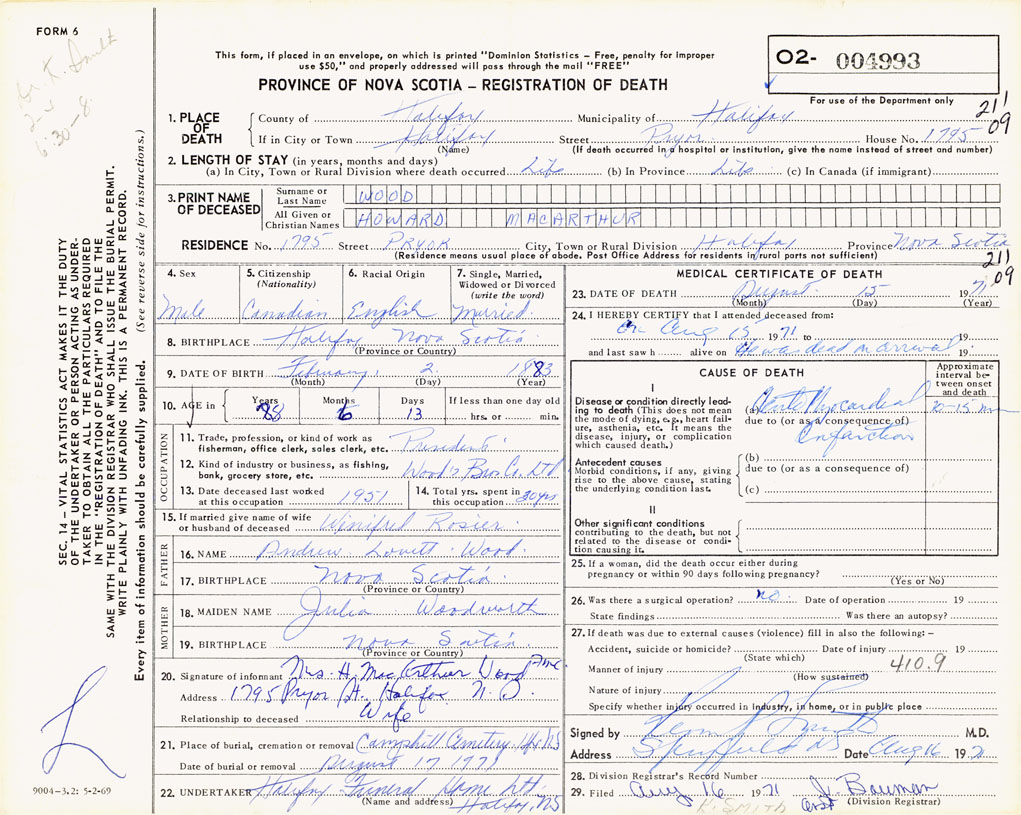 FORM 6
This form, if placed in an envelope, on which is printed "Dominion Statistics – Free, penalty for improper
use $50," and properly addressed will pass through the mail "FREE"
PROVINCE OF NOVA SCOTIA – REGISTRATION OF DEATH
02- 004993
For use of the Department only
211
09
SEC. 14 – VITAL STATISTICS ACT MAKES IT THE DUTY
OF THE UNDERTAKER OR PERSON ACTING AS UNDER-
TAKER TO OBTAIN ALL THE PARTICULARS REQUIRED
IN THE "REGISTRATION OF DEATH" AND TO FILE THE
SAME WITH THE DIVISION REGISTRAR WHO SHALL ISSUE THE BURIAL PERMIT.
WRITE PLAINLY WITH UNFADING INK. THIS IS A PERMANENT RECORD.
Every item of information should be carefully supplied. (See reverse side for instructions.)
1. PLACE OF DEATH
County of Halifax Municipality of Halifax
If in City or Town Halifax Street Pryor House No. 1795
(Name) (If death occurred in a hospital or institution, give the name instead of street and number)
2. LENGTH OF STAY (in years, months and days)
(a) In City, Town or Rural Division where death occurred Life (b) In Province Life (c) In Canada (if immigrant)
3. PRINT NAME OF DECEASED
Surname or Last Name WOOD
All Given or Christian Names HOWARD MACARTHUR
RESIDENCE No. 1795 Street PRYOR City, Town or Rural Division Halifax Province Nova Scotia
(Residence means usual place of abode. Post Office Address for residents in rural parts not sufficient)
211
09
4. Sex Male
5. Citizenship (Nationality) Canadian
6. Racial Origin English
7. Single, Married, Widowed or Divorced (write the word) Married
8. BIRTHPLACE Halifax Nova Scotia
(Province or Country)
9. DATE OF BIRTH February 2 1883
(Month) (Day) (Year)
10. AGE in Years 88 Months 6 Days 13 If less than one day old hrs. or min.
OCCUPATION
11. Trade, profession, or kind of work as
fisherman, office clerk, sales clerk, etc. President
12. Kind of industry or business, as fishing,
bank, grocery store, etc. Wood's Bros. Co. Ltd
13. Date deceased last worked
at this occupation 1951
14. Total yrs. spent in
this occupation 30 yrs
15. If married give name of wife
or husband of deceased Winifred Rosier
FATHER
16. NAME Andrew Lovett Wood
17. BIRTHPLACE Nova Scotia
(Province or Country)
MOTHER
18. MAIDEN NAME Julia Woodworth
19. BIRTHPLACE Nova Scotia
(Province or Country)
20. Signature of informant Mrs. H. MacArthur Wood
Address 1795 Pryor St. Halifax N.S.
Relationship to deceased Wife
21. Place of burial, cremation or removal Camphill Cemetery, Hfx NS
Date of burial or removal August 17 1971
22. UNDERTAKER Halifax Funeral Home Ltd.
(Name and address) Halifax, NS
MEDICAL CERTIFICATE OF DEATH
23. DATE OF DEATH August 15 1971
(Month) (Day) (Year)
24. I HEREBY CERTIFY that I attended deceased from:
on Aug 15 1971 to 19
and last saw h alive on He was dead on arrival 19
CAUSE OF DEATH
Approximate interval between onset and death
I
Disease or condition directly lead-
ing to death (This does not mean
the mode of dying, e.g., heart fail-
ure, asthenia, etc. It means the
disease, injury, or complication
which caused death.)
(a) Acute Myocardial 10-15 min
due to (or as a consequence of)
Infarction
Antecedent causes
Morbid conditions, if any, giving
rise to the above cause, stating
the underlying condition last.
(b)
due to (or as a consequence of)
(c)
II
Other significant conditions
contributing to the death, but not
related to the disease or condi-
tion causing it.
25. If a woman, did the death occur either during
pregnancy or within 90 days following pregnancy?
(Yes or No)
26. Was there a surgical operation? no Date of operation 19
State findings Was there an autopsy?
27. If death was due to external causes (violence) fill in also the following: –
Accident, suicide or homicide? Date of injury 19
(State which)
410.9
Manner of injury
(How sustained)
Nature of injury
Specify whether injury occurred in industry, in home, or in public place
Signed by M.D.
Address Date Aug 16 1971
28. Division Registrar's Record Number
29. Filed Aug 16 1971 J. Bauman
Asst (Division Registrar)
K. SMITH
9004-3.2: 5-2-69